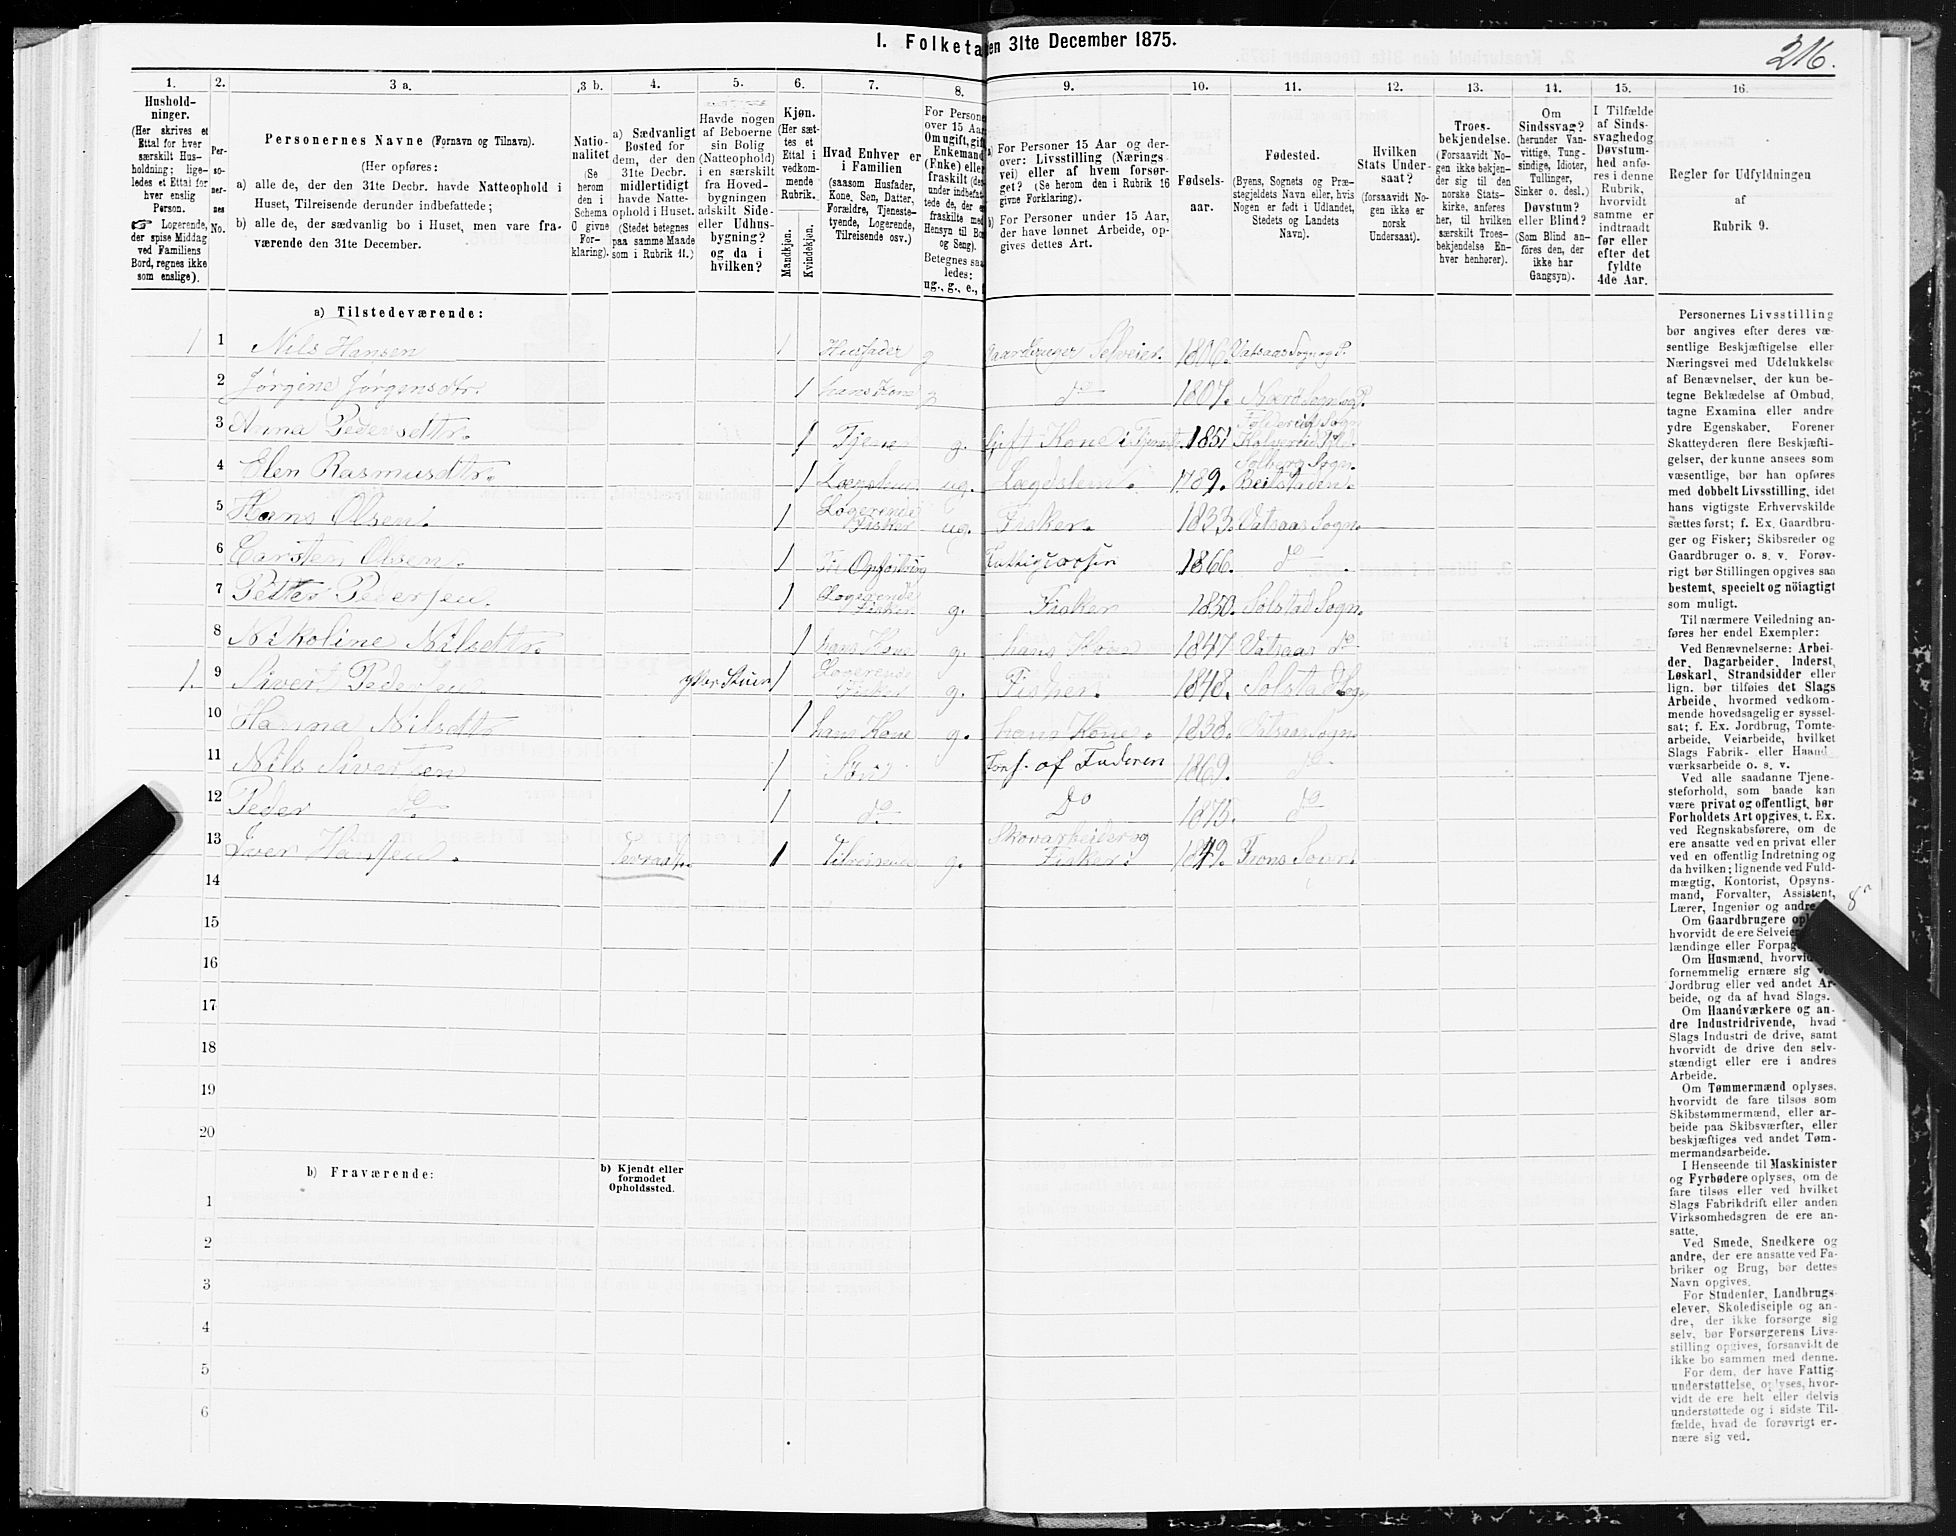 I. Folketa en 31te December 1875.
216.
1. 2. 3 a. 3 b. 4. 5. 6. 7. 8. 9. 10. 11. 12. 13. 14. 15. 16.
Hushold-
ninger.
(Her skrives et
Ettal for hver
særskilt Hus-
holdning; lige-
ledes et Ettal for
hver enslig
Person.
Logerende,
der spise Middag
ved Familiens
Bord, regnes ikke
som enslige).
Per-
so-
ner-
nes
No.
Personernes Navne (Fornavn og Tilnavn).
(Her opføres:
a) alle de, der den 31te Decbr. havde Natteophold i
Huset, Tilreisende derunder indbefattede;
b) alle de, der sædvanlig bo i Huset, men vare fra-
værende den 31te December.
Natio-
nalitet
(Se
herom
den i
Schema
O givne
For-
klaring).
a) Sædvanligt
Bosted for
dem, der den
31te Decbr.
midlertidigt
havde Natte-
ophold i Huset.
(Stedet betegnes
paa samme Maade
som i Rubrik 11.)
Havde nogen
af Beboerne
sin Bolig
(Natteophold)
i en særskilt
fra Hoved-
bygningen
adskilt Side-
eller Udhus-
bygning?
og da i
hvilken?
Kjøn.
(Her sæt-
tes et
Ettal i
vedkom-
mende
Rubrik.
Mandkjøn.
Kvindekjøn.
Hvad Enhver er
i Familien
(saasom Husfader,
Kone, Søn, Datter,
Forældre, Tjeneste-
tyende, Logerende,
Tilreisende osv.)
For Persone
over 15 Aar
Om ugift, gift
Enkemand
(Fnke) eller
fraskilt (des
under indbefat-
tede de, der e
fraskilte med
Hensyn til Bo
og Seng).
Betegnes saa
ledes:
ug., g., e., f
a) For Personer 15 Aar og der-
over: Livsstilling (Nærings
vei) eller af hvem forsør-
get? (Se herom den i Rubrik 16
givne Forklaring).
b) For Personer under 15 Aar,
der have lønnet Arbeide, op-
gives dettes Art.
Fødsels-
aar.
Fødested.
(Byens, Sognets og Præ-
stegjeldets Navn eller, hvis
Nogen er født i Udlandet,
Stedets og Landets
Navn).
Hvilken
Stats Under-
saat?
(forsaavidt No-
gen ikke er
norsk
Undersaat).
Troes-
bekjendelse.
(Forsaavidt No-
gen ikke bekjen-
der sig til den
norske Stats-
kirke, anføres
her, til hvilken
særskilt Troes-
bekjendelse En-
hver henhører).
Om
Sindssvag?
(herunder Van-
vittige, Tung-
sindige, Idioter,
Tullinger,
Sinker o. desl.)
Døvstum?
eller Blind?
(Som Blind an-
føres den, der
ikke har
Gangsyn).
I Tilfælde
af Sinds-
svaghed og
Døvstum-
hed anfø-
res i denne
Rubrik,
hvorvidt
samme er
indtraadt
før eller
efter det
fyldte
4de Aar.
Regler for Udfyldningen
af
Rubrik 9.
a) Tilstedeværende:
1 1 Nils Hansen 1 Husfader g Gaardbruger Selveier. 1806. Vatsaas Sogn og P.
2 Jørgine Jørgensdtr. 1 hans Kone g do 1807. Nærø Sogn og P.
3 Anna Pedersdtr. 1 Tjener g. Gift Kone i Tjeneste 1851 Foldereid Sogn Kolvereid P.
4 Elen Rasmusdtr. 1 Lægdslem ug. Lægdslem. 1789. Solberg Sogn. Beitstaden.
5 Hans Olsen. 1 Logerende Fisker ug. Fisker. 1833. Vatsaas Sogn.
6 Carsten Olsen. 1 Til Opfostring Fattigvæsen 1866. do.
7 Petter Pedersen. 1 Logerende Fisker g. Fisker 1850. Solstad Sogn.
8 Nikoline Nilsdtr. 1 hans Kone g. hans Kone 1847 Vatsaas do
1. 9 Sivert Pedersen. 1 Logerende Fisker g. Fisker. 1848. Solstad Sogn
10 Hanna Nilsdtr 1 hans Kone g. hans Kone. 1838. Vatsaas Sogn.
11 Nils Sivertsen 1 Søn Fors. af Faderen 1869. do
12 Peder do 1 do Do 1875. do
13 Iver Hansen. 1 Tilreisende g. Skovarbeider og Fisker. 1849.
14
15
16
17
18
19
20
b) Fraværende:
b) Kjendt eller
formodet
Opholdssted.
1
2
3
4
5
6
Personernes Livsstilling
bør angives efter deres væ-
sentlige Beskjæftigelse eller
Næringsvei med Udelukkelse
af Benævnelser, der kun be-
tegne Beklædelse af Ombud,
tagne Examina eller andre
ydre Egenskaber. Forener
Skatteyderen flere Beskjæfti-
gelser, der kunne ansees som
væsentlige, bør han opføres
med dobbelt Livsstilling, idet
hans vigtigste Erhvervskilde
sættes først; f. Ex. Gaardbru-
ger og Fisker; Skibsreder og
Gaardbruger o. s. v. Forøv-
rigt bør Stillingen opgives saa
bestemt, specielt og nöiagtigt
som muligt.
Til nærmere Veiledning an-
føres her endel Exempler:
Ved Benævnelserne: Arbei-
der, Dagarbeider, Inderst,
Løskarl, Strandsidder eller
lign. bør tilføies det Slags
Arbeide, hvormed vedkom-
mende hovedsagelig er syssel-
sat; f. Ex. Jordbrug, Tomte-
arbeide, Veiarbeide, hvilket
Slags Fabrik- eller Haand
værksarbeide o. s. v.
Ved alle saadanne Tjene-
steforhold, som baade kan
være privat og offentligt, bør
Forholdets Art opgives, t. Ex.
ved Regnskabsførere, om de
ere ansatte ved en privat eller
ved en offentlig Indretning og
da hvilken; lignende ved Fuld-
mægtig, Kontorist, Opsyns-
mand, Forvalter, Assistent,
Lærer, Ingeniør og andre
Om Gaardbrugere opl
hvorvidt de ere Selveier
lændinge eller Forpag
Om Husmænd, hvorvid
fornemmelig ernære sig v
Jordbrug eller ved andet Ar-
beide, og da af hvad Slags.
Om Haandværkere og an-
dre Industridrivende, hvad
Slags Industri de drive, samt
hvorvidt de drive den selv-
stændigt eller ere i andres
Arbeide.
Om Tømmermænd oplyses,
hvorvidt de fare tilsøs som
Skibstømmermænd, eller ar-
beide paa Skibsværfter, eller
beskjæftiges ved andet Tøm-
mermandsarbeide.
I Henseende til Maskinister
og Fyrbødere oplyses, om de
fare tilsøs eller ved hvilket
Slags Fabrikdrift eller anden
Virksomhedsgren de ere an-
satte.
Ved Smede, Snedkere og
andre, der ere ansatte ved Fa-
briker og Brug, bør dettes
Navn opgives.
For Studenter, Landbrugs-
elever, Skoledisciple og an-
dre, der ikke forsørge sig
selv, bør Forsørgerens Livs-
stilling opgives, forsaavidt de
ikke bo sammen med denne.
For dem, der have Fattig-
understøttelse, oplyses, hvor-
vidt de ere helt eller delvis
understøttede og i sidste Til-
fælde, hvad de forøvrigt er-
nære sig ved.